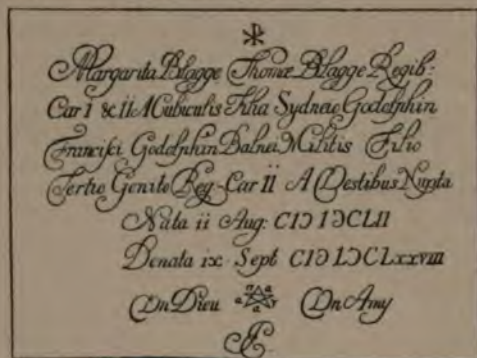 Margarita Blagge Thomæ Blagge Regib:
Car I & II A Cubiculis Filia Sydneio Godolphin
Francisci Godolphin Balnei Militis Filio
Tertio Genito Reg. Car II A Vestibus Nupta
Nata ii Aug: CIƆ IƆCLII
Denata ix Sept CIƆ IƆCLxxviii
Un Dieu Un Amy